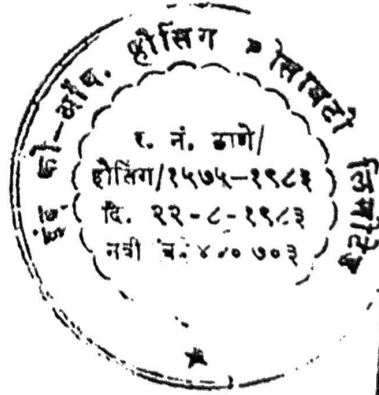 को-ऑप. हौसिंग सोसायटी लिमिटेड
र. नं. ठाणे/
हौसिंग/१५७५-१९८३
दि. २२-८-१९८३
४०० ७०३